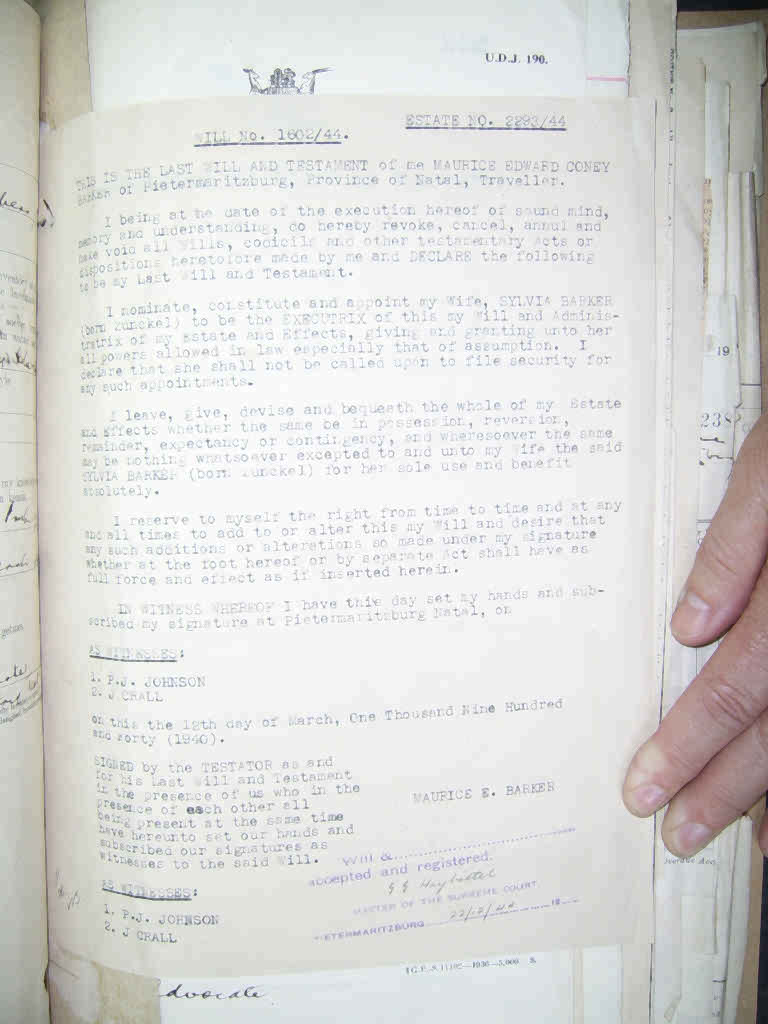 U.D.J. 190.
ESTATE NO. 2293/44
WILL No. 1602/44.
THIS IS THE LAST WILL AND TESTAMENT of me MAURICE EDWARD CONEY
Barker of Pietermaritzburg, Province of Natal, Traveller.
I being at the date of the execution hereof of sound mind,
memory and understanding, do hereby revoke, cancel, annul and
make void all Wills, codicils and other testamentary Acts or
dispositions heretofore made by me and DECLARE the following
to be my Last Will and Testament.
I nominate, constitute and appoint my Wife, SYLVIA BARKER
(born Zunckel) to be the EXECUTRIX of this my Will and Adminis-
tratrix of my Estate and Effects, giving and granting unto her
all powers allowed in law especially that of assumption. I
declare that she shall not be called upon to file security for
any such appointments.
I leave, give, devise and bequeath the whole of my Estate
and Effects whether the same be in possession, reversion,
remainder, expectancy or contingency, and wheresoever the same
may be nothing whatsoever excepted to and unto my Wife the said
SYLVIA BARKER (born Zunckel) for her sole use and benefit
absolutely.
I reserve to myself the right from time to time and at any
and all times to add to or alter this my Will and desire that
any such additions or alterations so made under my signature
whether at the foot hereof or by separate Act shall have as
full force and effect as if inserted herein.
IN WITNESS WHEREOF I have this day set my hands and sub-
scribed my signature at Pietermaritzburg Natal, on
AS WITNESSES:
1. P.J. JOHNSON
2. J CRALL
on this the 12th day of March, One Thousand Nine Hundred
and Forty (1940).
SIGNED by the TESTATOR as and
for his Last Will and Testament
in the presence of us who in the
presence of each other all
being present at the same time
have hereunto set our hands and
subscribed our signatures as
witnesses to the said Will.
MAURICE E. BARKER
AS WITNESSES:
1. P.J. JOHNSON
2. J CRALL
Will &
accepted and registered.
MASTER OF THE SUPREME COURT
PIETERMARITZBURG 22/12/44 19
G.P.-S.11102-1936-5,000 S.
advocate
19
238